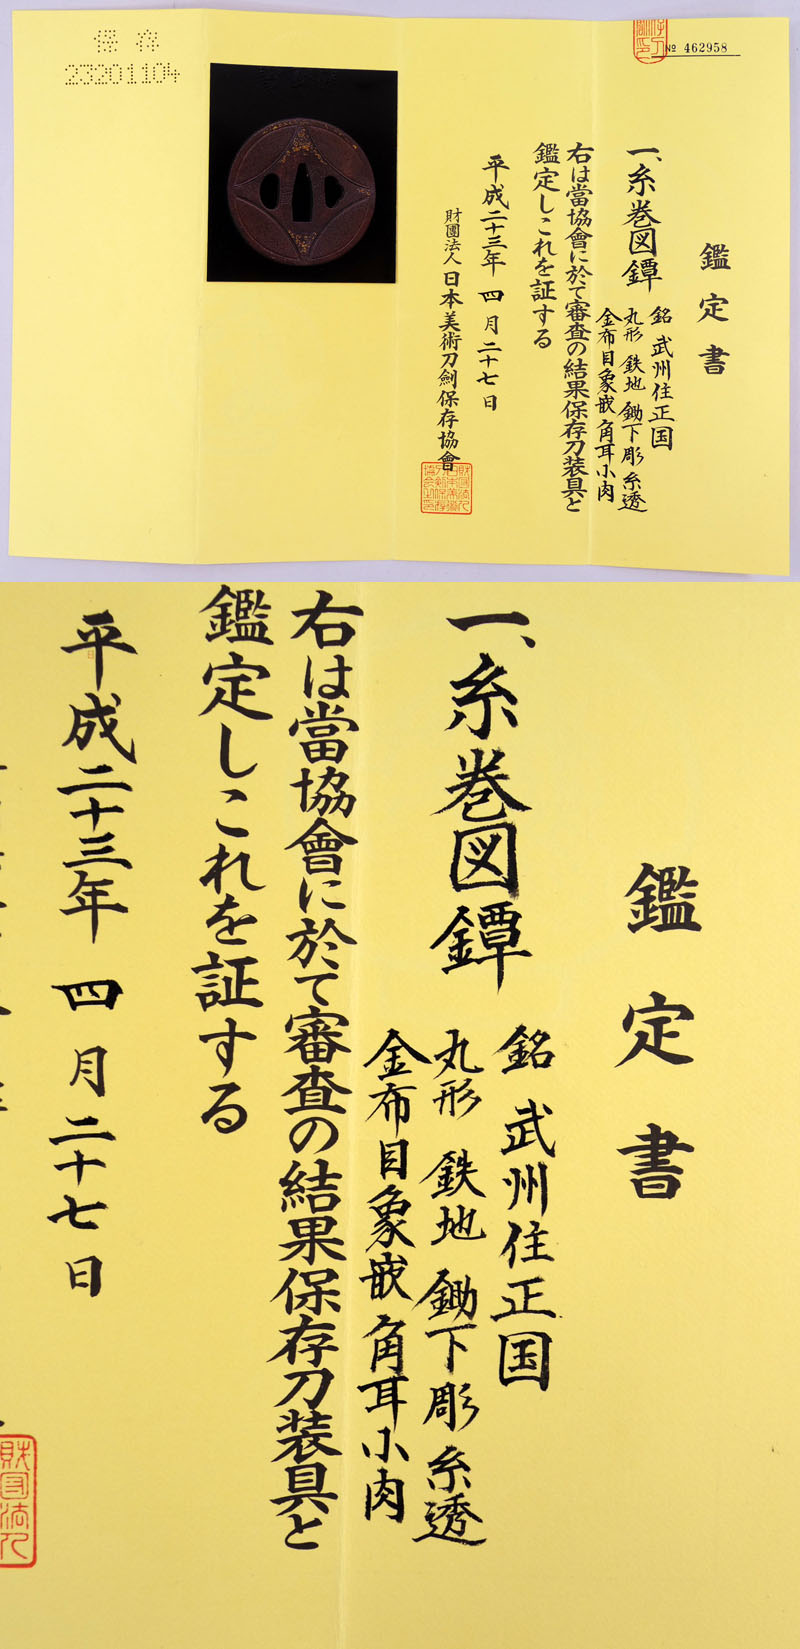 № 462958
鑑定書
一、糸巻図鐔
銘 武州住正国
丸形 鉄地 鋤下彫 糸透
金布目象嵌 角耳小肉
右は當協會に於て審査の結果保存刀装具と
鑑定しこれを証する
平成二十三年 四月二十七日
財團法人日本美術刀劍保存協會
保存
23201104
鑑定書
一、糸巻図鐔
銘 武州住正国
丸形 鉄地 鋤下彫 糸透
金布目象嵌 角耳小肉
右は當協會に於て審査の結果保存刀装具と
鑑定しこれを証する
平成二十三年 四月二十七日
財團法人